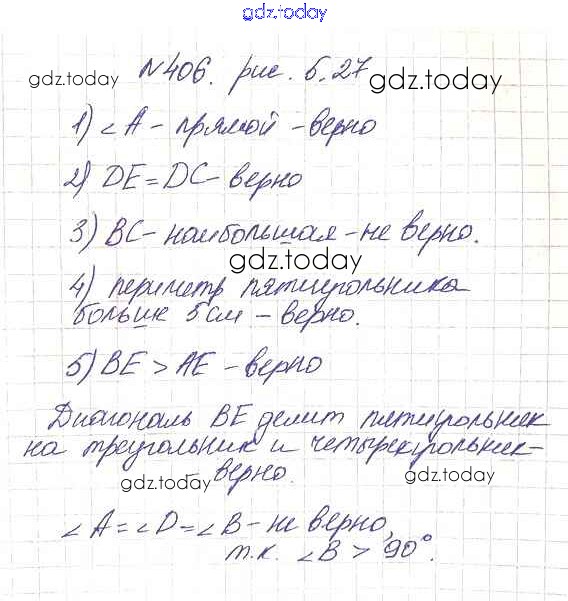 gdz.today
№406. рис. 5.27
gdz.today
gdz.today
1) ∠A - прямой - верно
2) DE = DC - верно
3) BC - наибольшая - не верно.
gdz.today
4) периметр пятиугольника
больше 5 см - верно.
5) BE > AE - верно
Диагональ BE делит пятиугольник
на треугольник и четырехугольник -
верно.
gdz.today
gdz.today
∠A = ∠D = ∠B - не верно,
т.к. ∠B > 90°.